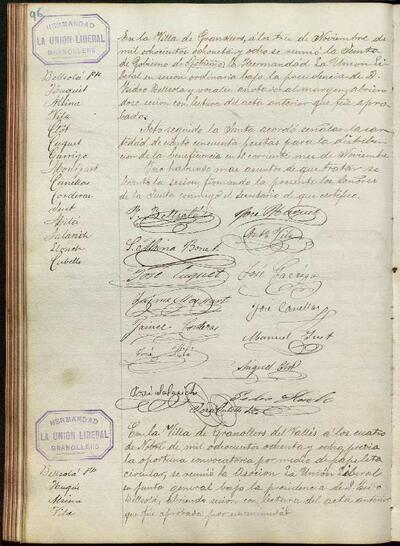 96
HERMANDAD
LA UNIÓN LIBERAL
GRANOLLERS
En la Villa de Granollers, a los tres de Noviembre de
mil ochocientos ochenta y ocho se reunió la Junta
de Gobierno de la Hermandad La Union Li
beral en sesion ordinaria bajo la presidencia de D.
Pedro Bellsolá y vocales anotados al margen, abrien
dose sesion con lectura del acta anterior que fué apro
bada.
Acto seguido la Junta acordó señalar la can
tidad de ciento cincuenta pesetas para la distribu
cion de la beneficencia en el corriente mes de Noviembre
Y no habiendo mas asuntos de que tratar se
levantó la sesion, firmando la presente los Señores
de la Junta conmigo el secretario de que certifico.
Bellsolá Pte
Maspons
Vila
Clot
Cuguet
Garriga
Canellas
Corderas
Junet
Salarich
Cubells
P. Bellsolá
José
Vila
Bonet
José Cuguet
José Garriga
Jaime
José Canellas
Jaime Corderas
Manuel Junet
José
Miguel Clot
José Salarich
Pedro
HERMANDAD
LA UNIÓN LIBERAL
GRANOLLERS
En la Villa de Granollers del Vallés a los cuatro
de Nobre de mil ochocientos ochenta y ocho, previa
la oportuna convocatoria por medio de papeleta
circular, se reunió la Seccion La Union Liberal
en junta general bajo la presidencia de D. Pedro
Bellsolá, abriendo sesion con lectura del acta anterior
que fué aprobada por unanimidad
Bellsolá Pte
Vila